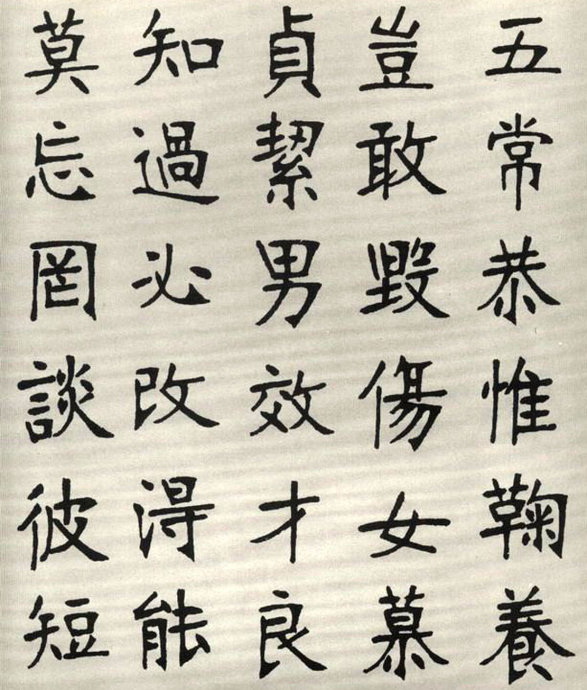 五常恭惟鞠養
豈敢毀傷女慕
貞絜男效才良
知過必改得能
莫忘罔談彼短